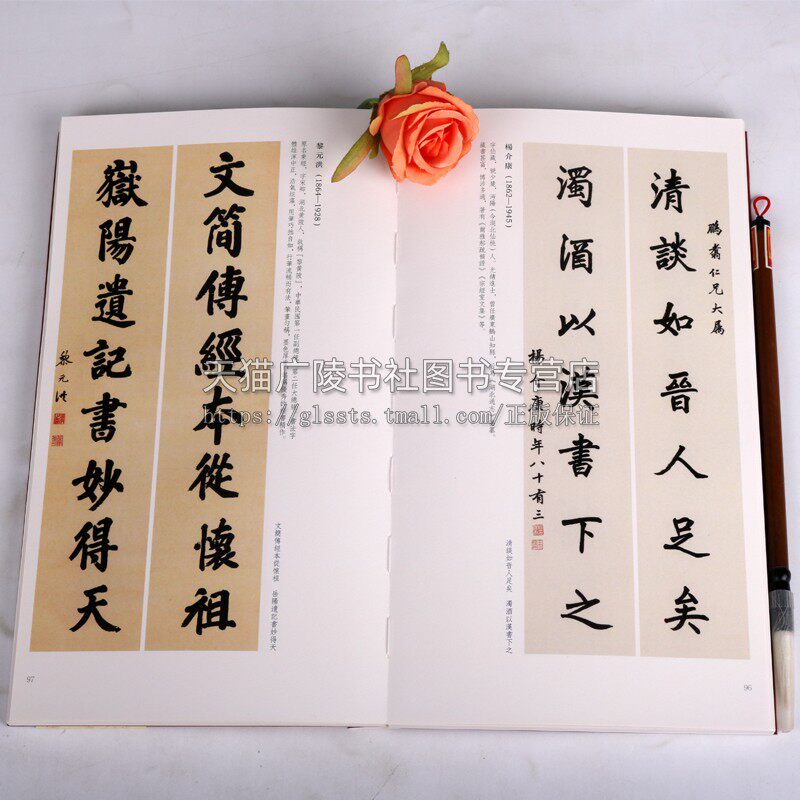 清談如晉人足矣
鵬翥仁兄大屬
濁酒以漢書下之
楊介康時年八十有三
楊介康(1862—1945)
沔陽(今湖北仙桃)人。光緒進士,曾任廣東鶴山知縣
藏書甚富,博涉多通。著有
清談如晉人足矣 濁酒以漢書下之
96
黎元洪(1864—1928)
原名秉經,字宋卿,湖北黃陂人,故稱「黎黃陂」,中華民國第一任副總統
文簡傳經本從懷祖 岳陽遺記書妙得天
文簡傳經本從懷祖
嶽陽遺記書妙得天
黎元洪
97
天猫广陵书社图书专营店
https://glssts.tmall.com/正版保证